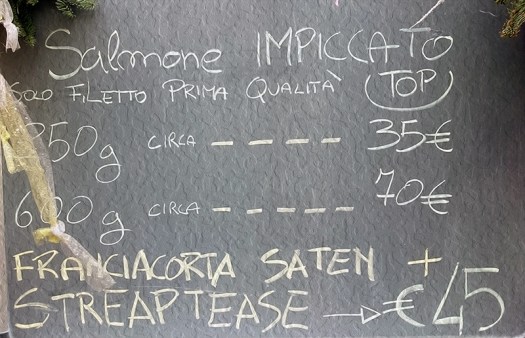 Salmone IMPICCATO
SOLO FILETTO PRIMA QUALITÀ (TOP)
250g CIRCA ----- 35€
600g CIRCA ----- 70€
FRANCIACORTA SATEN +
STREAPTEASE → €45